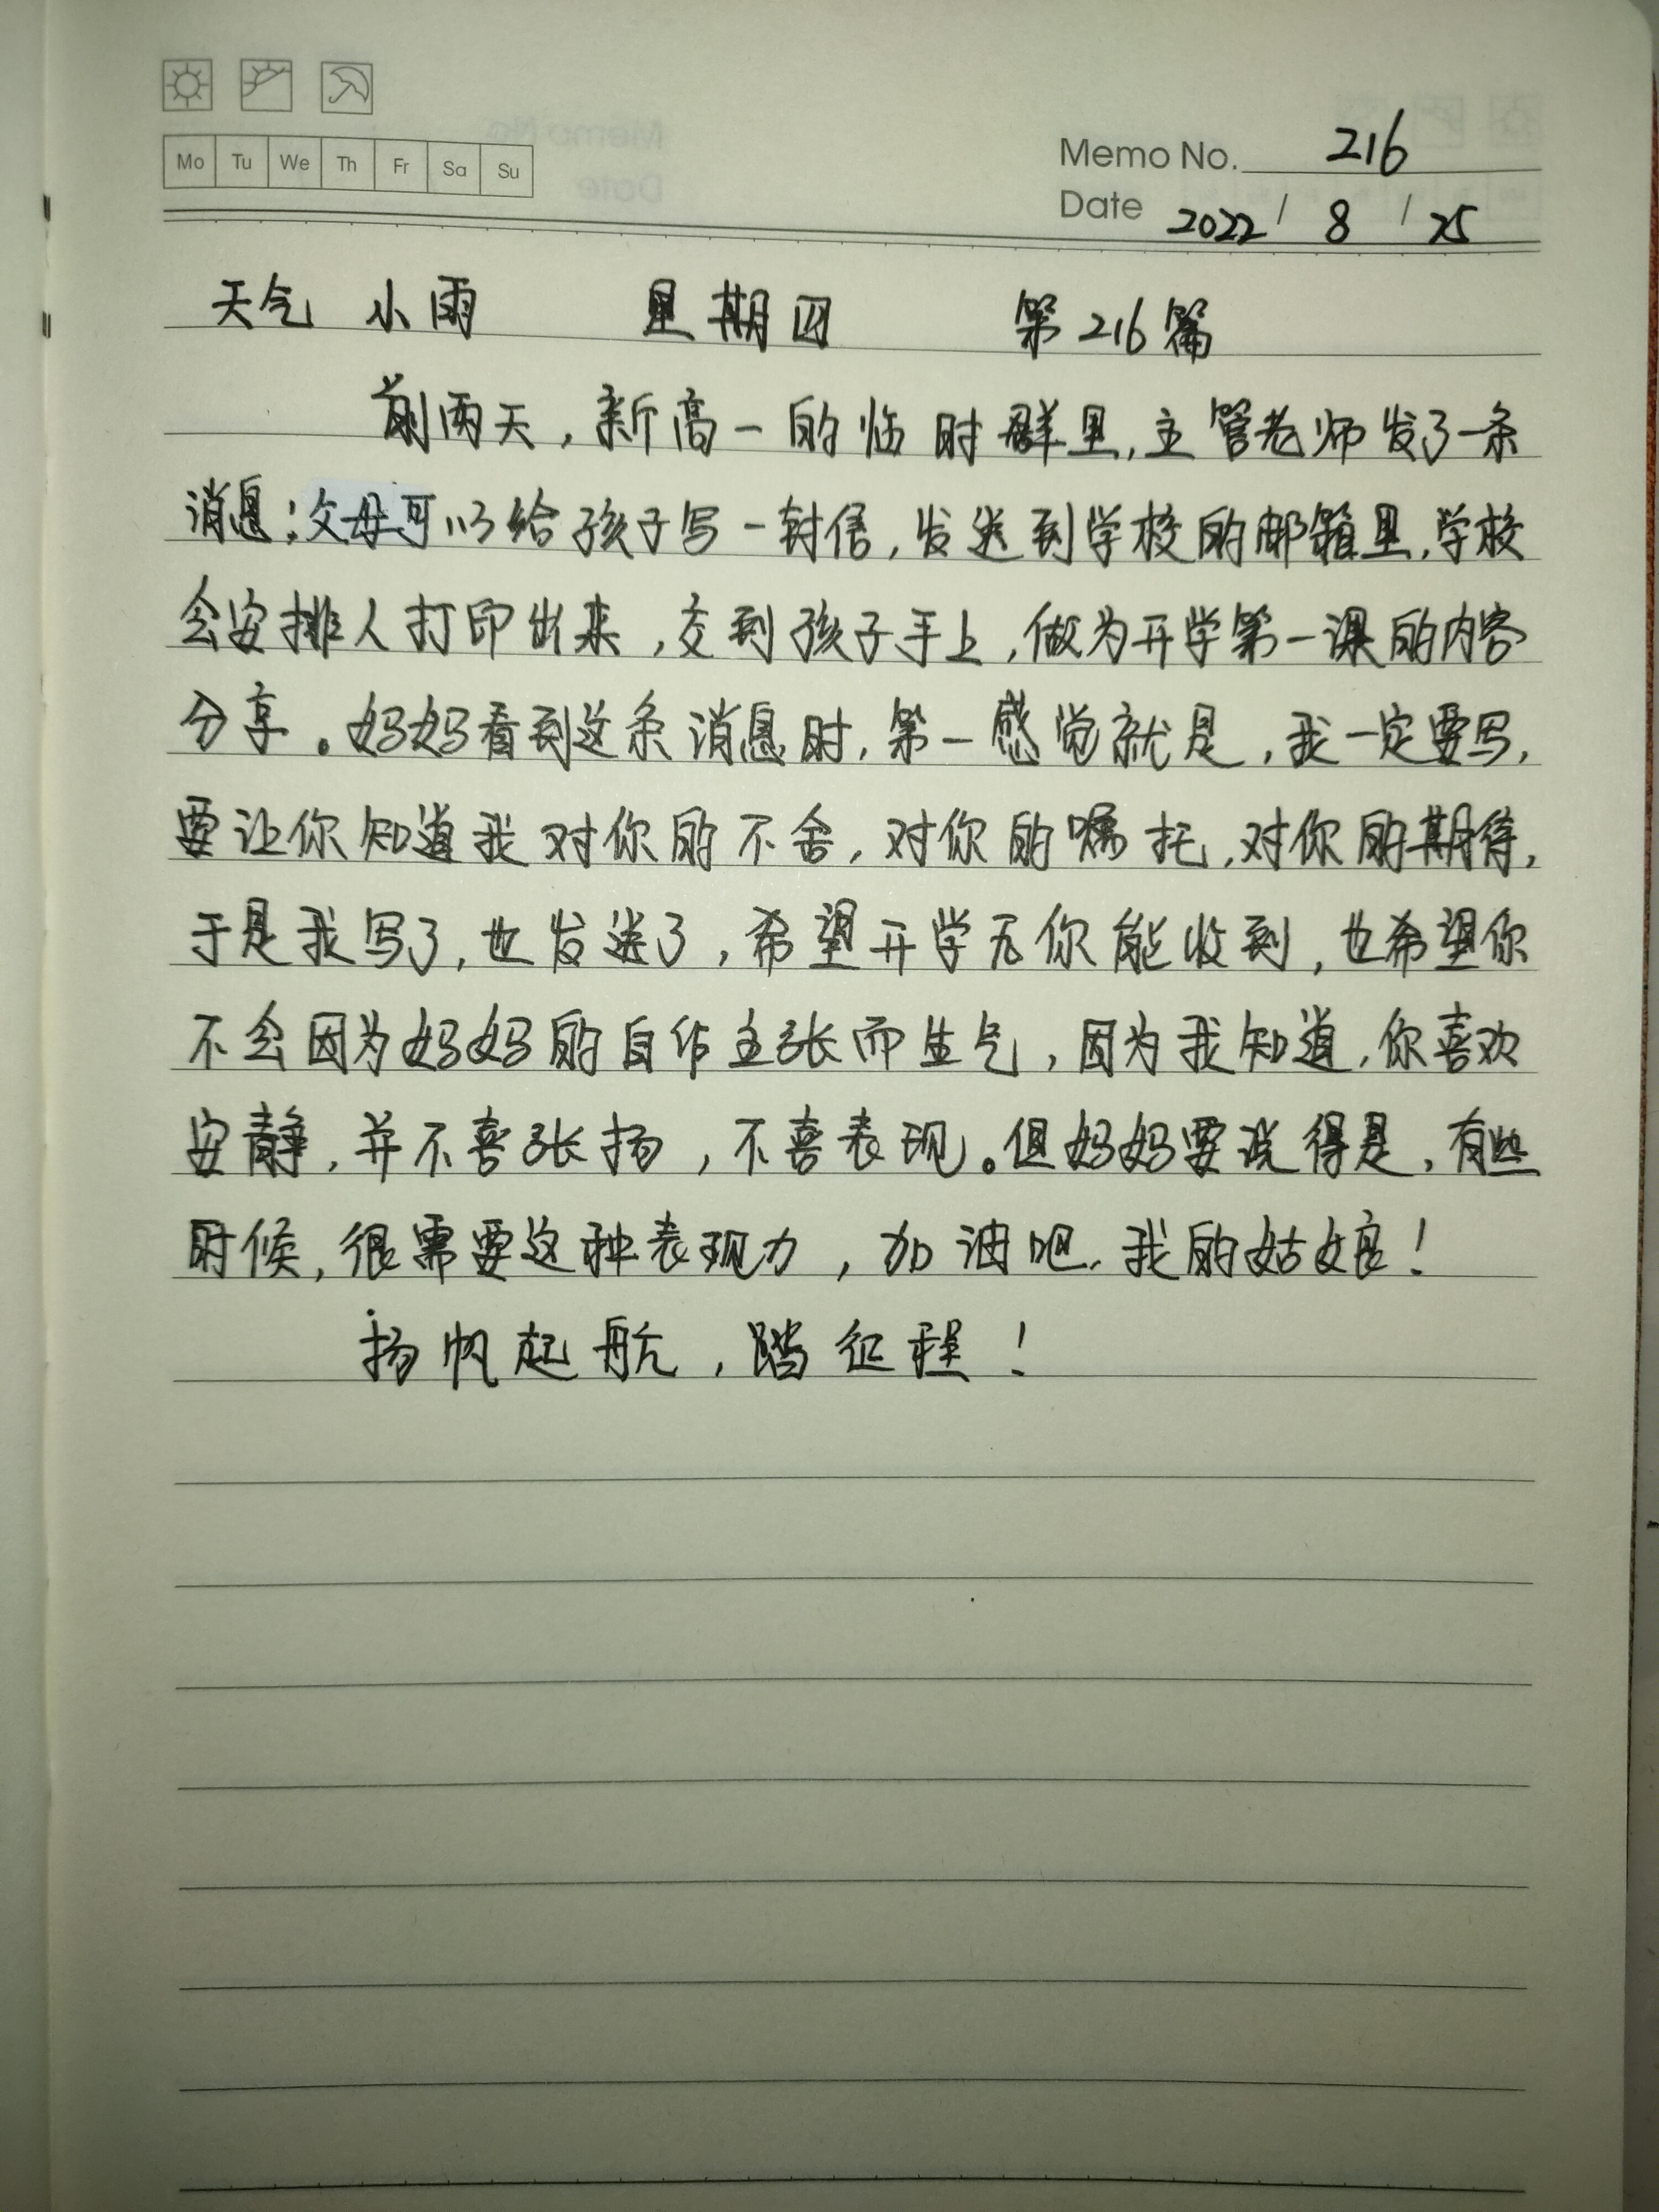 Mo Tu We Th Fr Sa Su
Memo No. 216
Date 2022 / 8 / 25
天气 小雨 星期四 第216篇
前两天，新高一的临时群里，主管老师发了一条
消息：父母可以给孩子写一封信，发送到学校的邮箱里，学校
会安排人打印出来，交到孩子手上，做为开学第一课的内容
分享。妈妈看到这条消息时，第一感觉就是，我一定要写，
要让你知道我对你的不舍，对你的嘱托，对你的期待，
于是我写了，也发送了，希望开学后你能收到，也希望你
不会因为妈妈的自作主张而生气，因为我知道，你喜欢
安静，并不喜张扬，不喜表现。但妈妈要说得是，有些
时候，很需要这种表现力，加油吧，我的姑娘！
扬帆起航，踏征程！